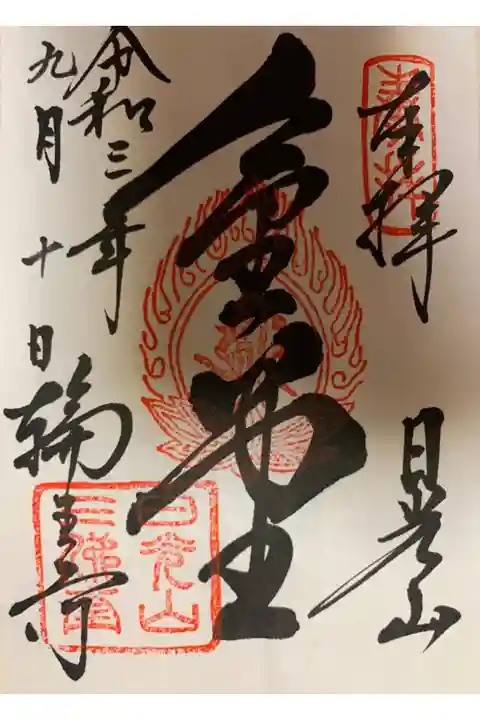 奉拝
日光山
金堂
令和三年
九月十日
輪王寺
日光山
三佛堂